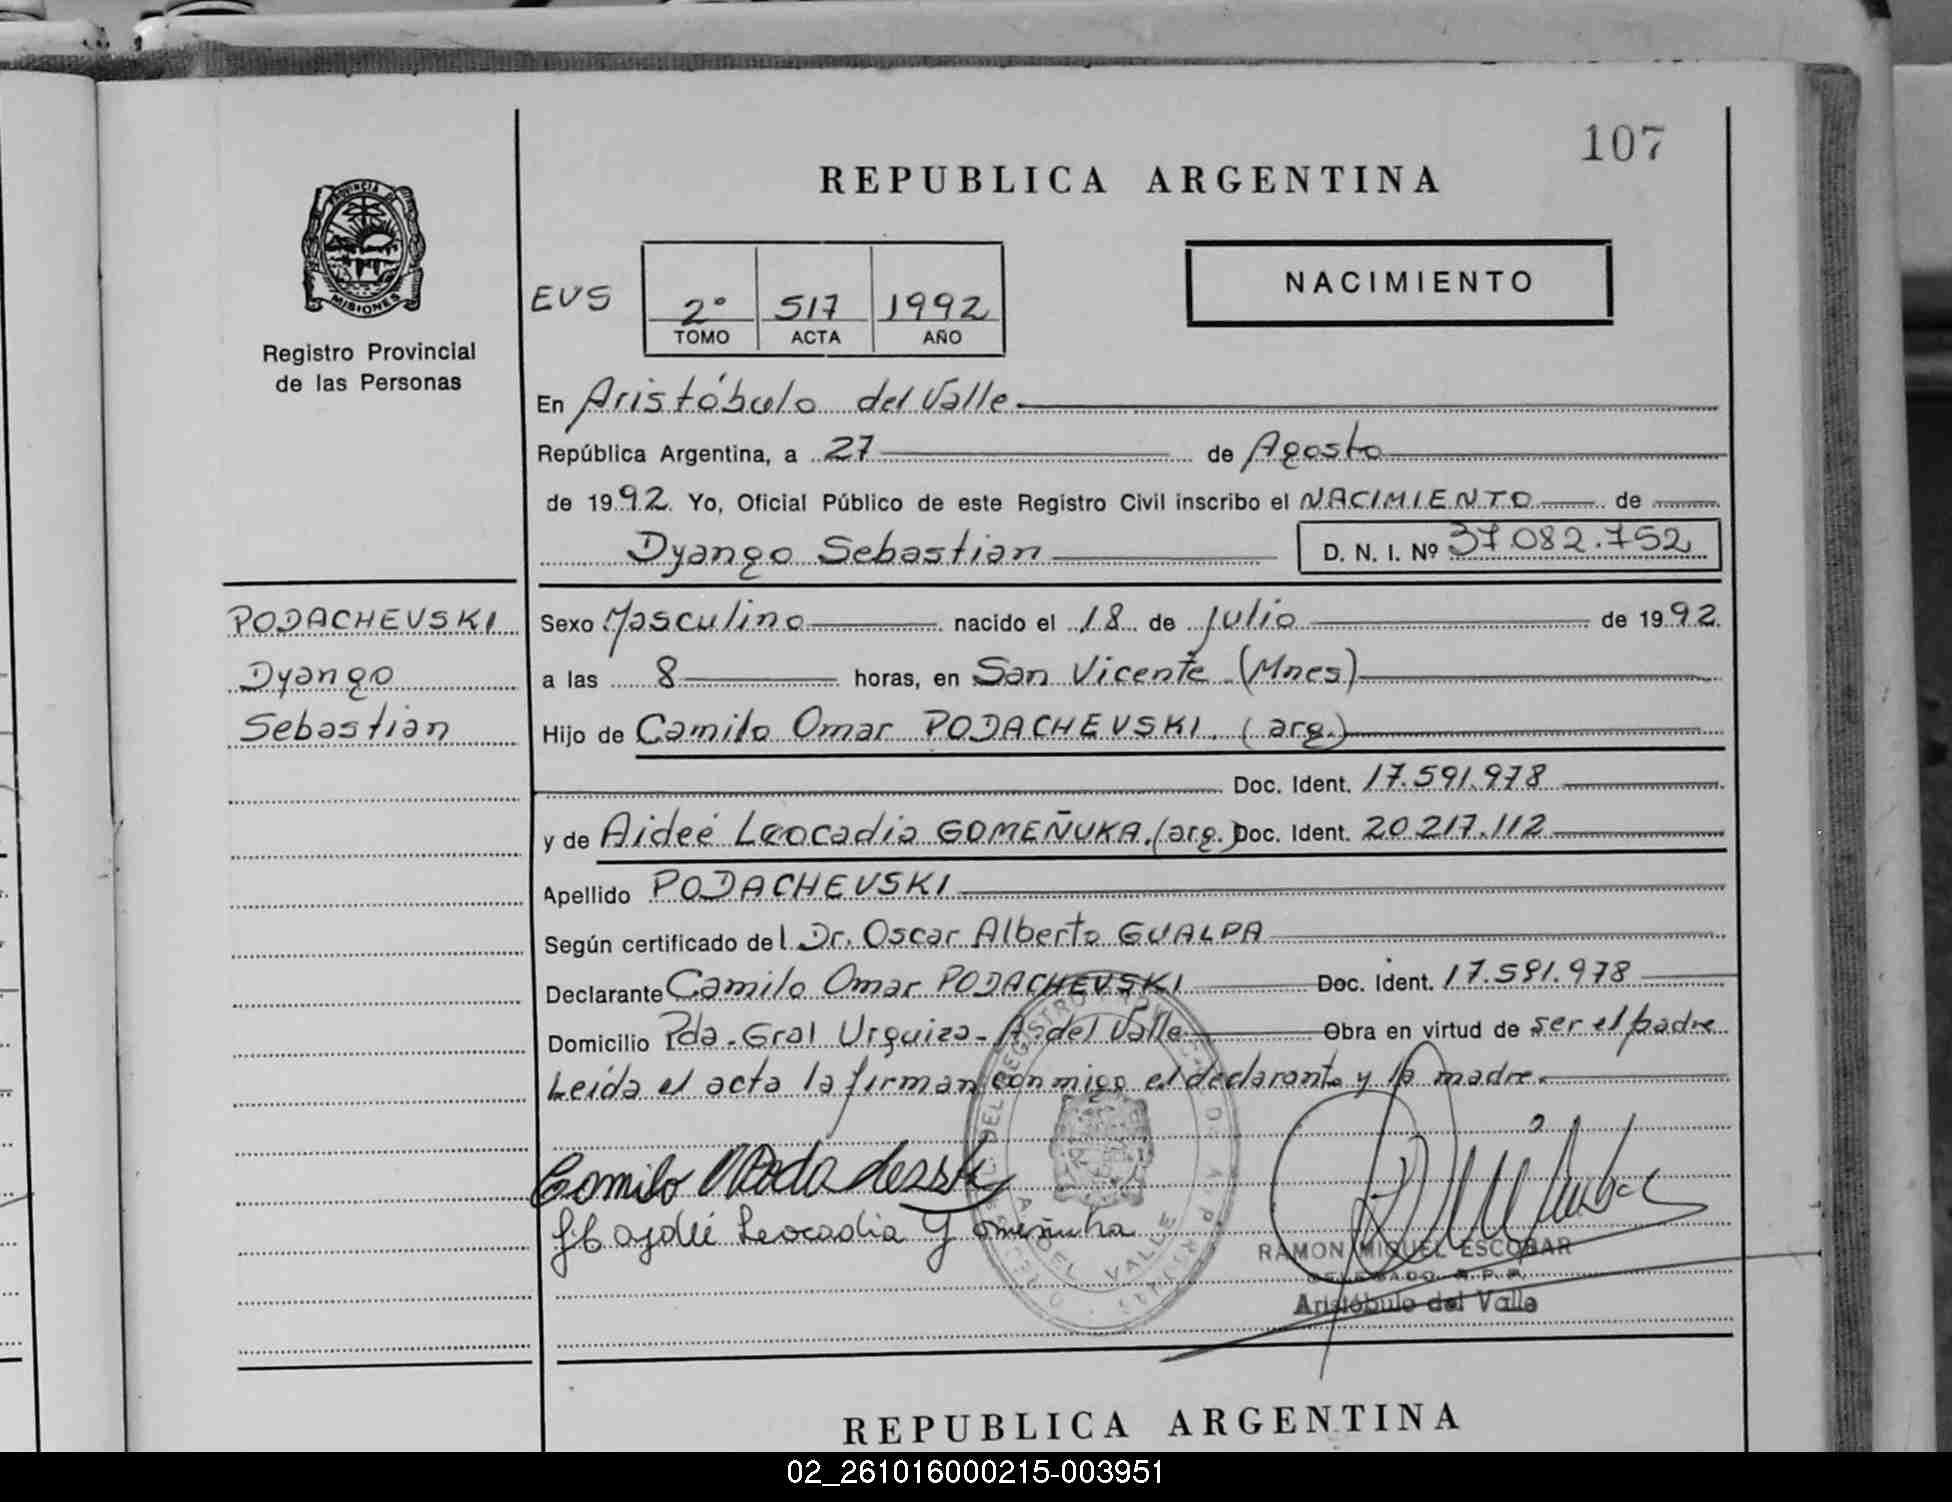 107
REPUBLICA ARGENTINA
PROVINCIA DE
MISIONES
Registro Provincial
de las Personas
EVS
2° 517 1992
TOMO ACTA AÑO
NACIMIENTO
En Aristóbulo del Valle
República Argentina, a 27 de Agosto
de 1992. Yo, Oficial Público de este Registro Civil inscribo el NACIMIENTO de
Dyango Sebastian D. N. I. Nº 37.082.752
PODACHEVSKI
Dyango
Sebastian
Sexo Masculino nacido el 18 de Julio de 1992.
a las 8 horas, en San Vicente (Mnes)
Hijo de Camilo Omar PODACHEVSKI. (arg.)
Doc. Ident. 17.591.978
y de Aideé Leocadia GOMEÑUKA. (arg.) Doc. Ident. 20.217.112
Apellido PODACHEVSKI
Según certificado del Dr. Oscar Alberto GUALPA
Declarante Camilo Omar PODACHEVSKI Doc. Ident. 17.591.978
Domicilio Pda. Gral Urquiza - A. del Valle Obra en virtud de ser el padre
Leída el acta la firman conmigo el declarante y la madre.
Camilo
Leocadia
A. DEL VALLE
RAMON MIGUEL ESCOBAR
DELEGADO R.P.P.
Aristóbulo del Valle
REPUBLICA ARGENTINA
02_261016000215-003951